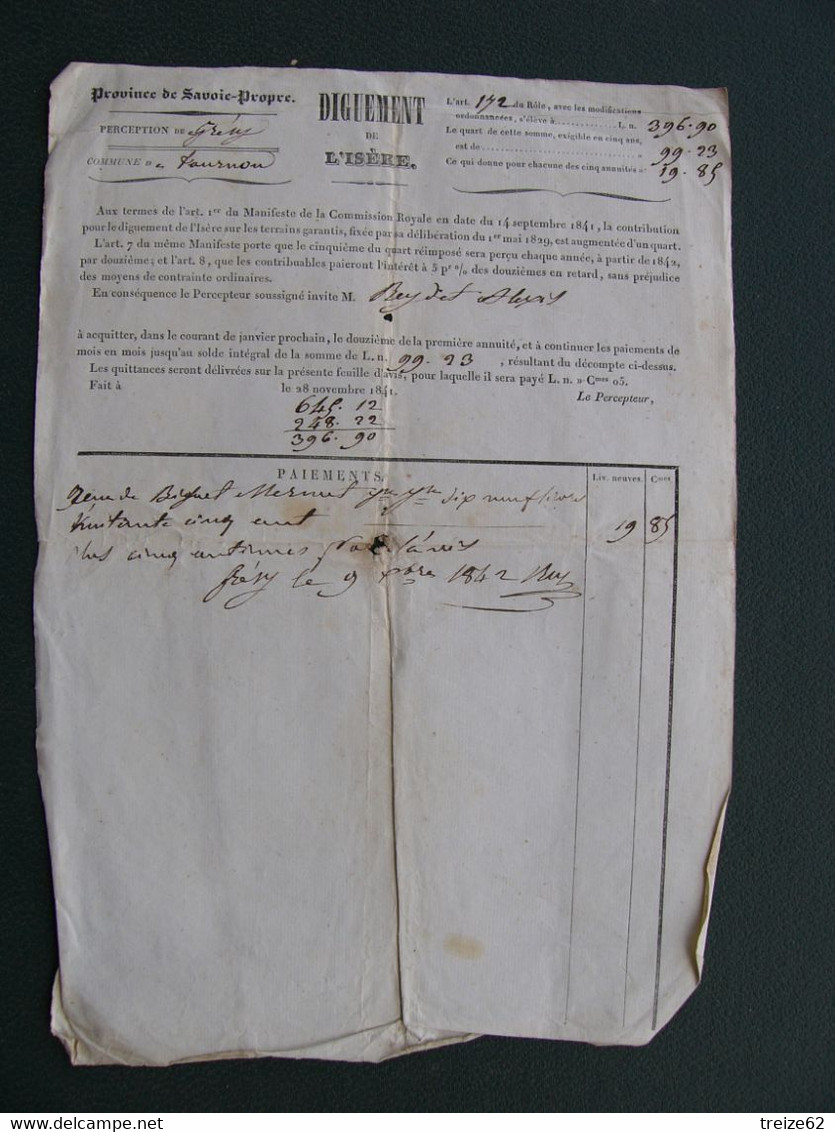 Province de Savoie-Propre.
PERCEPTION DE Grésy
COMMUNE D e Tournon
DIGUEMENT
DE
L'ISÈRE.
L'art. 172 du Rôle, avec les modifications
ordonnancées, s'élève à ............ L. n. 396.90
Le quart de cette somme, exigible en cinq ans,
est de ............ » 99.23
Ce qui donne pour chacune des cinq annuités » 19.85
Aux termes de l'art. 1er du Manifeste de la Commission Royale en date du 14 septembre 1841, la contribution
pour le diguement de l'Isère sur les terrains garantis, fixée par sa délibération du 1er mai 1829, est augmentée d'un quart.
L'art. 7 du même Manifeste porte que le cinquième du quart réimposé sera perçu chaque année, à partir de 1842,
par douzième; et l'art. 8, que les contribuables paieront l'intérêt à 5 pr % des douzièmes en retard, sans préjudice
des moyens de contrainte ordinaires.
En conséquence le Percepteur soussigné invite M. Beydet Alexis
à acquitter, dans le courant de janvier prochain, le douzième de la première annuité, et à continuer les paiements de
mois en mois jusqu'au solde intégral de la somme de L. n. 99.23, résultant du décompte ci-dessus.
Les quittances seront délivrées sur la présente feuille d'avis, pour laquelle il sera payé L. n. » Cmes 05.
Fait à le 28 novembre 1841.
Le Percepteur,
645.12
248.22
396.90
PAIEMENTS.
Liv. neuves.
Cmes
de Mermet dix neuf livres
cinq 19 85
plus cinq centimes
Grésy le 9 xbre 1842
treize62